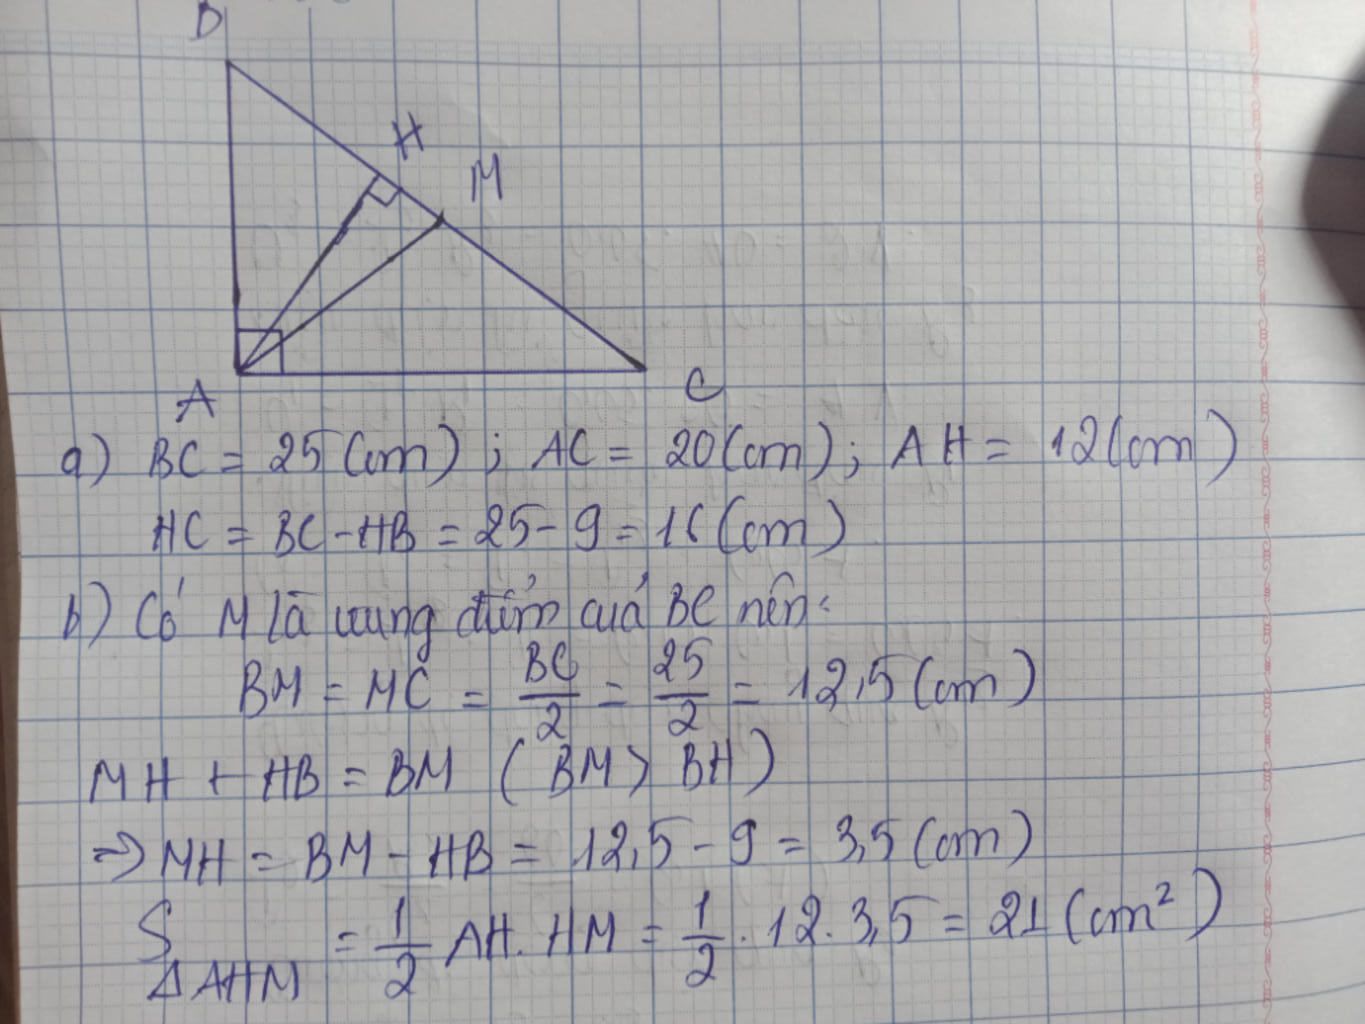 B
H
M
A
C
a) BC = 25 (cm) ; AC = 20 (cm) ; AH = 12 (cm)
HC = BC - HB = 25 - 9 = 16 (cm)
b) Có M là trung điểm của BC nên:
BM = MC = BC/2 = 25/2 = 12,5 (cm)
MH + HB = BM ( BM > BH )
=> MH = BM - HB = 12,5 - 9 = 3,5 (cm)
S ΔAHM = 1/2 AH. HM = 1/2 . 12. 3,5 = 21 (cm²)